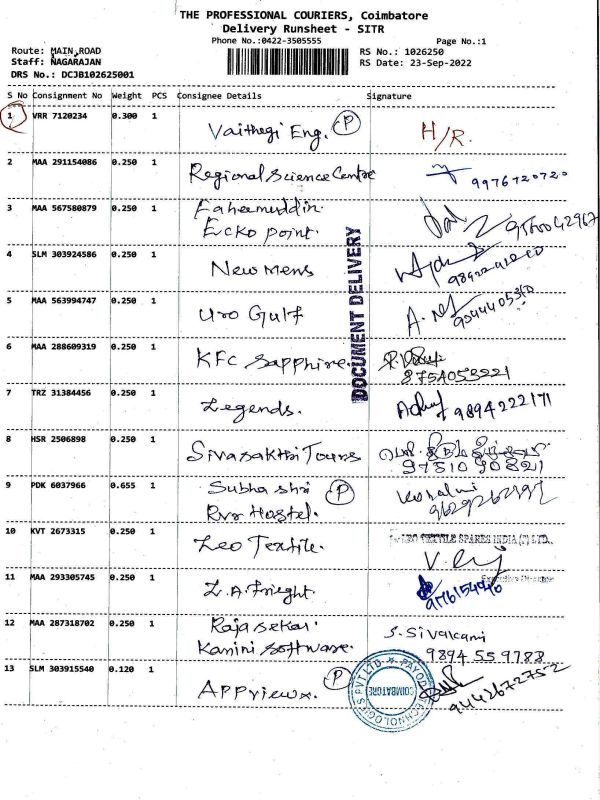 THE PROFESSIONAL COURIERS, Coimbatore
Delivery Runsheet - SITR
Phone No.:0422-3505555 Page No.:1
Route: MAIN ROAD RS No.: 1026250
Staff: NAGARAJAN RS Date: 23-Sep-2022
DRS No.: DCJB102625001
S No Consignment No Weight PCS Consignee Details Signature
1 VRR 7120234 0.300 1 Vaithegi Eng. P H/R.
2 MAA 291154086 0.250 1 Regional Science Centre 9976720720
3 MAA 567580879 0.250 1 Faheemuddin.
Ecko point.
4 SLM 303924586 0.250 1 New Mens
5 MAA 563994747 0.250 1 Uro Gulf
6 MAA 288609319 0.250 1 KFC Sapphire.
8754053221
7 TRZ 31384456 0.250 1 Legends. 9894222171
8 HSR 2506898 0.250 1 Sivasakthi Tours
9751090821
9 PDK 6037966 0.655 1 Subha shri P
Rvr Hostel.
10 KVT 2673315 0.250 1 Leo Textile. LEO TEXTILE SPARES INDIA (P) LTD.,
Executive Director
11 MAA 293305745 0.250 1 L.A. Frieght.
12 MAA 287318702 0.250 1 Raja sekar. S. Sivakami
Kanini software. 9894559788
13 SLM 303915540 0.120 1 APPviewx. P 9442672752
DOCUMENT DELIVERY
PAYODA TECHNOLOGIES PVT LTD
COIMBATORE